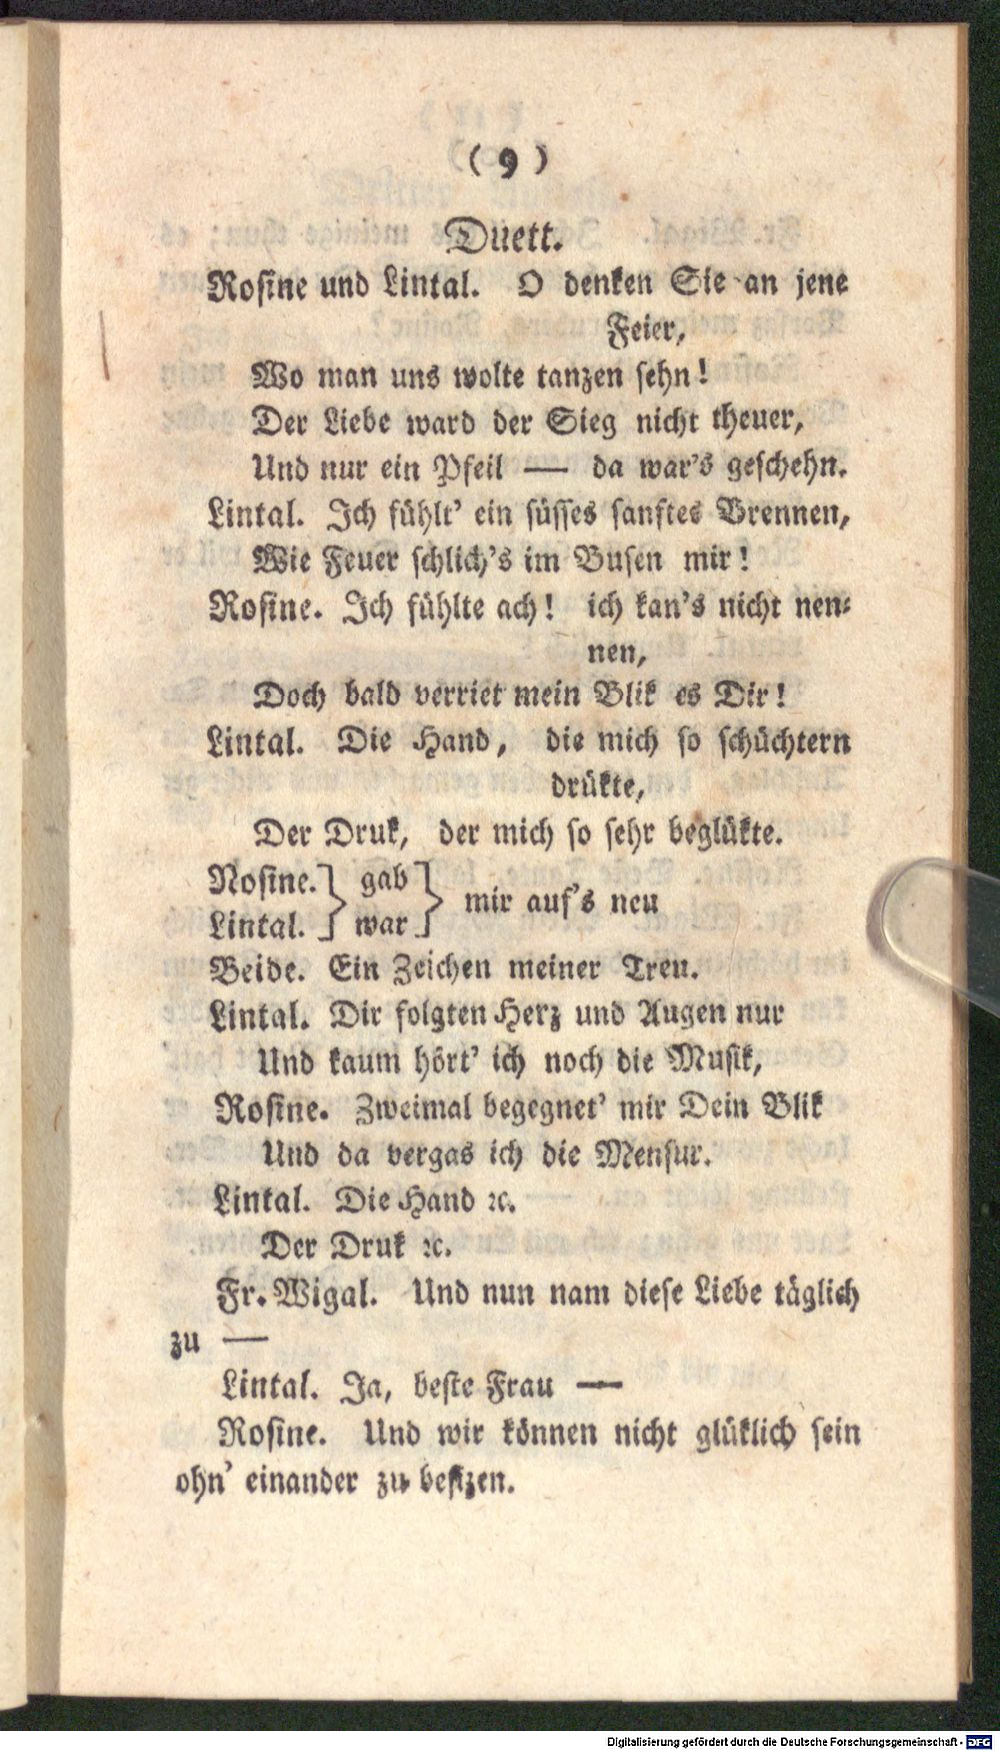 ( 9 )
Duett.
Rosine und Lintal. O denken Sie an jene
Feier,
Wo man uns wolte tanzen sehn!
Der Liebe ward der Sieg nicht theuer,
Und nur ein Pfeil — da war's geschehn.
Lintal. Ich fühlt' ein süsses sanftes Brennen,
Wie Feuer schlich's im Busen mir!
Rosine. Ich fühlte ach! ich kan's nicht nen-
nen,
Doch bald verriet mein Blik es Dir!
Lintal. Die Hand, die mich so schüchtern
drükte,
Der Druk, der mich so sehr beglükte.
Rosine.} gab} mir auf's neu
Lintal.} war}
Beide. Ein Zeichen meiner Treu.
Lintal. Dir folgten Herz und Augen nur
Und kaum hört' ich noch die Musik,
Rosine. Zweimal begegnet' mir Dein Blik
Und da vergas ich die Mensur.
Lintal. Die Hand ꝛc.
Der Druk ꝛc.
Fr. Wigal. Und nun nam diese Liebe täglich
zu —
Lintal. Ja, beste Frau —
Rosine. Und wir können nicht glüklich sein
ohn' einander zu besizen.
Digitalisierung gefördert durch die Deutsche Forschungsgemeinschaft - DFG